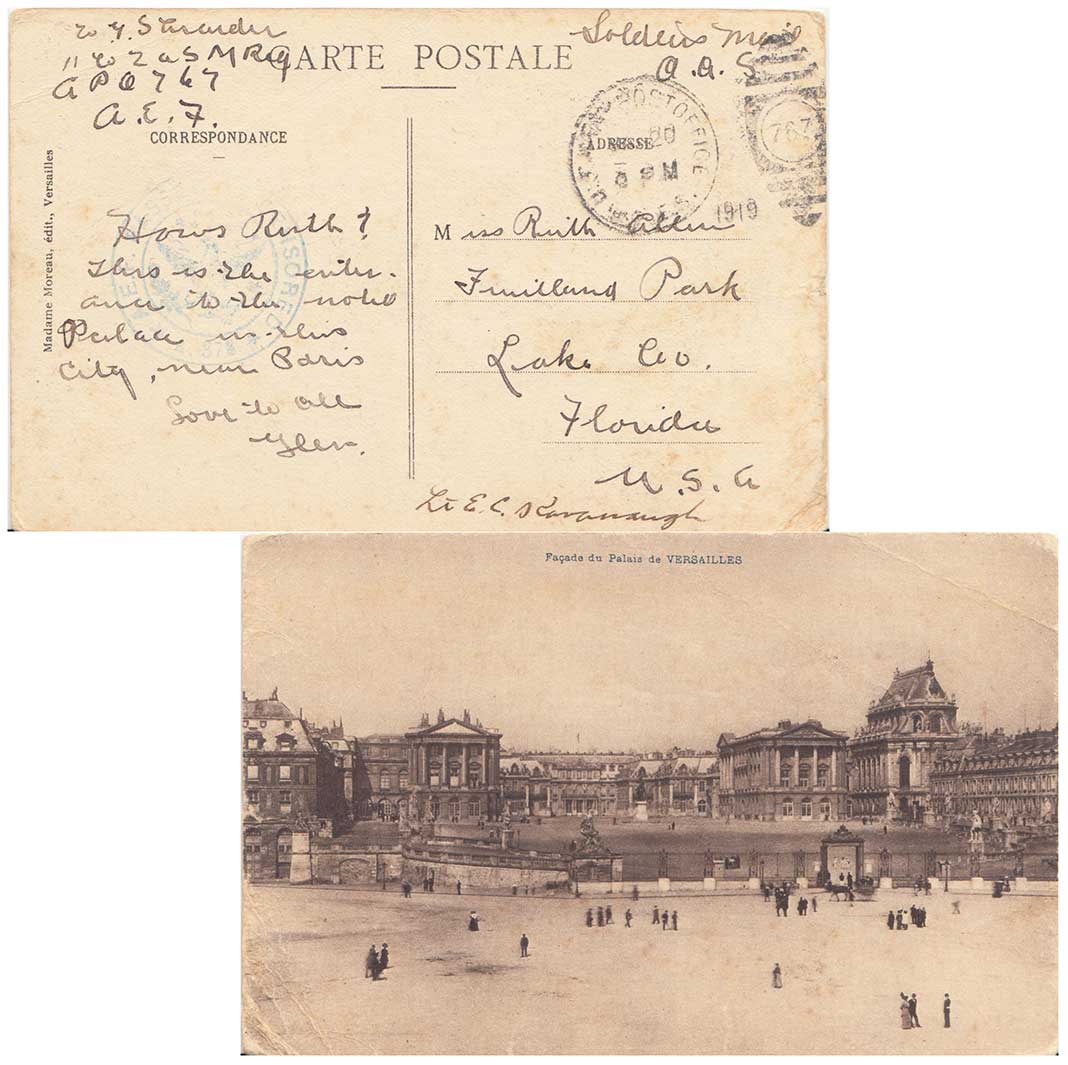 W. G. Strarder
11 Co 2 A S M Reg
APO 767
A. E. F.
CARTE POSTALE
Soldiers Mail
A. A. S
CORRESPONDANCE
ADRESSE
POST OFFICE
20
PM
1919
767
Madame Moreau, édit., Versailles
Hows Ruth?
This is the enter-
ance to the noted
Palace in this
city, near Paris
Love to all
Glen.
Miss Ruth Allen
Fruitland Park
Lake Co.
Florida
U. S. A
Lt E. C. Kavanaugh
Façade du Palais de VERSAILLES